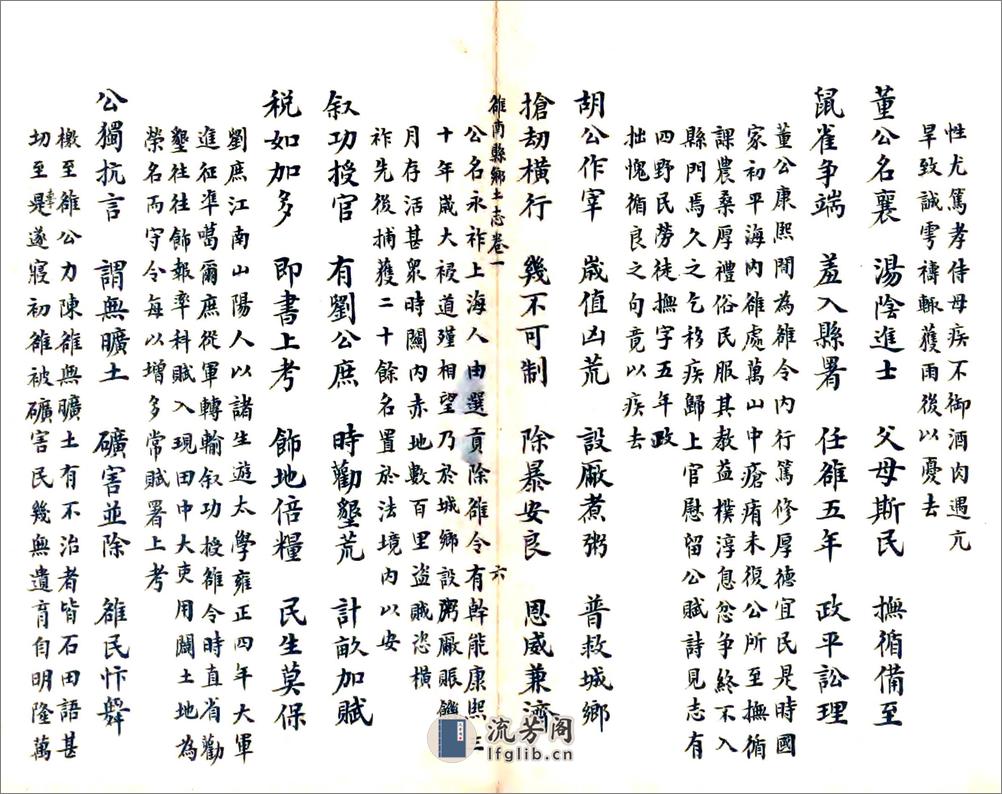 性尤篤孝侍母疾不御酒肉遇亢
旱致誠雩禱輙獲雨後以憂去
董公名襄 湯陰進士 父母斯民 撫循備至
鼠雀争端 羞入縣署 任雒五年 政平訟理
董公康熙間為雒令内行篤修厚德宜民是時國
家初平海内雒處萬山中瘡痏未復公所至撫循
課農桑厚禮俗民服其教益樸淳息忿争終不入
縣門焉久之乞移疾歸上官慰留公賦詩見志有
四野民勞徒撫字五年政
拙愧循良之句竟以疾去
胡公作宰 嵗值凶荒 設厰煮粥 普救城鄉
搶刼横行 幾不可制 除暴安良 恩威兼濟
雒南縣鄉土志卷一 六
公名永祚上海人由選貢除雒令有幹能康熙三
十年嵗大祲道殣相望乃於城鄉設粥厰賑饑
月存活甚眾時關内赤地數百里盗賊恣横
祚先後捕獲二十餘名置於法境内以安
叙功授官 有劉公庶 時勸墾荒 計畝加賦
税如加多 即書上考 飾地倍糧 民生莫保
劉庶江南山陽人以諸生遊太學雍正四年大軍
進征準噶爾庶從軍轉輸叙功授雒令時直省勸
墾往往飾報率科賦入現田中大吏用闢土地為
榮名而守令每以增多常賦署上考
公獨抗言 謂無曠土 礦害並除 雒民忭舞
檄至雒公力陳雒無曠土有不治者皆石田語甚
切至事是遂寢初雒被礦害民幾無遺育自明隆萬
流芳阁
lfglib.cn